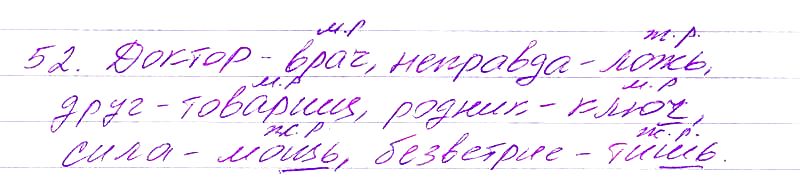 м.р ж.р.
52. Доктор - врач, неправда - ложь,
м.р м.р
друг - товарищ, родник - ключ,
ж.р ж.р.
сила - мощь, безветрие - тишь.